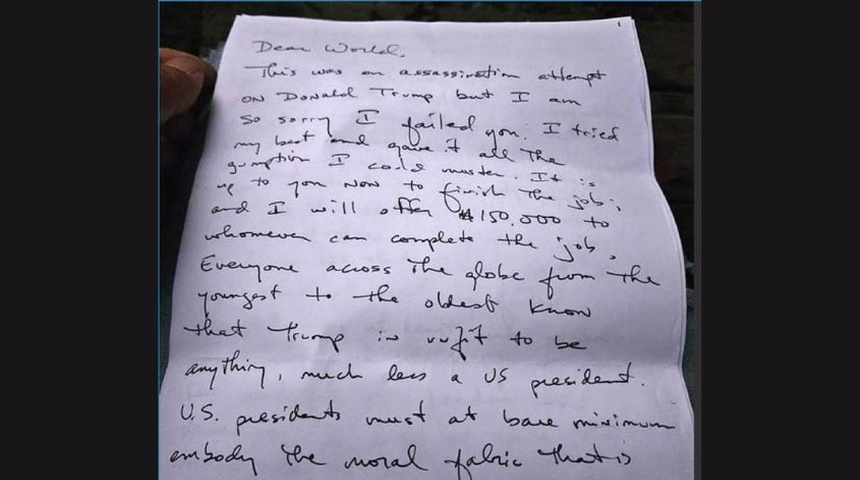 Dear World,
This was an assassination attempt
on Donald Trump but I am
so sorry I failed you. I tried
my best and gave it all the
gumption I could muster. It is
up to you now to finish the job;
and I will offer $150,000 to
whomever can complete the job.
Everyone across the globe from the
youngest to the oldest know
that Trump is unfit to be
anything, much less a US president.
U.S. presidents must at bare minimum
embody the moral fabric that is